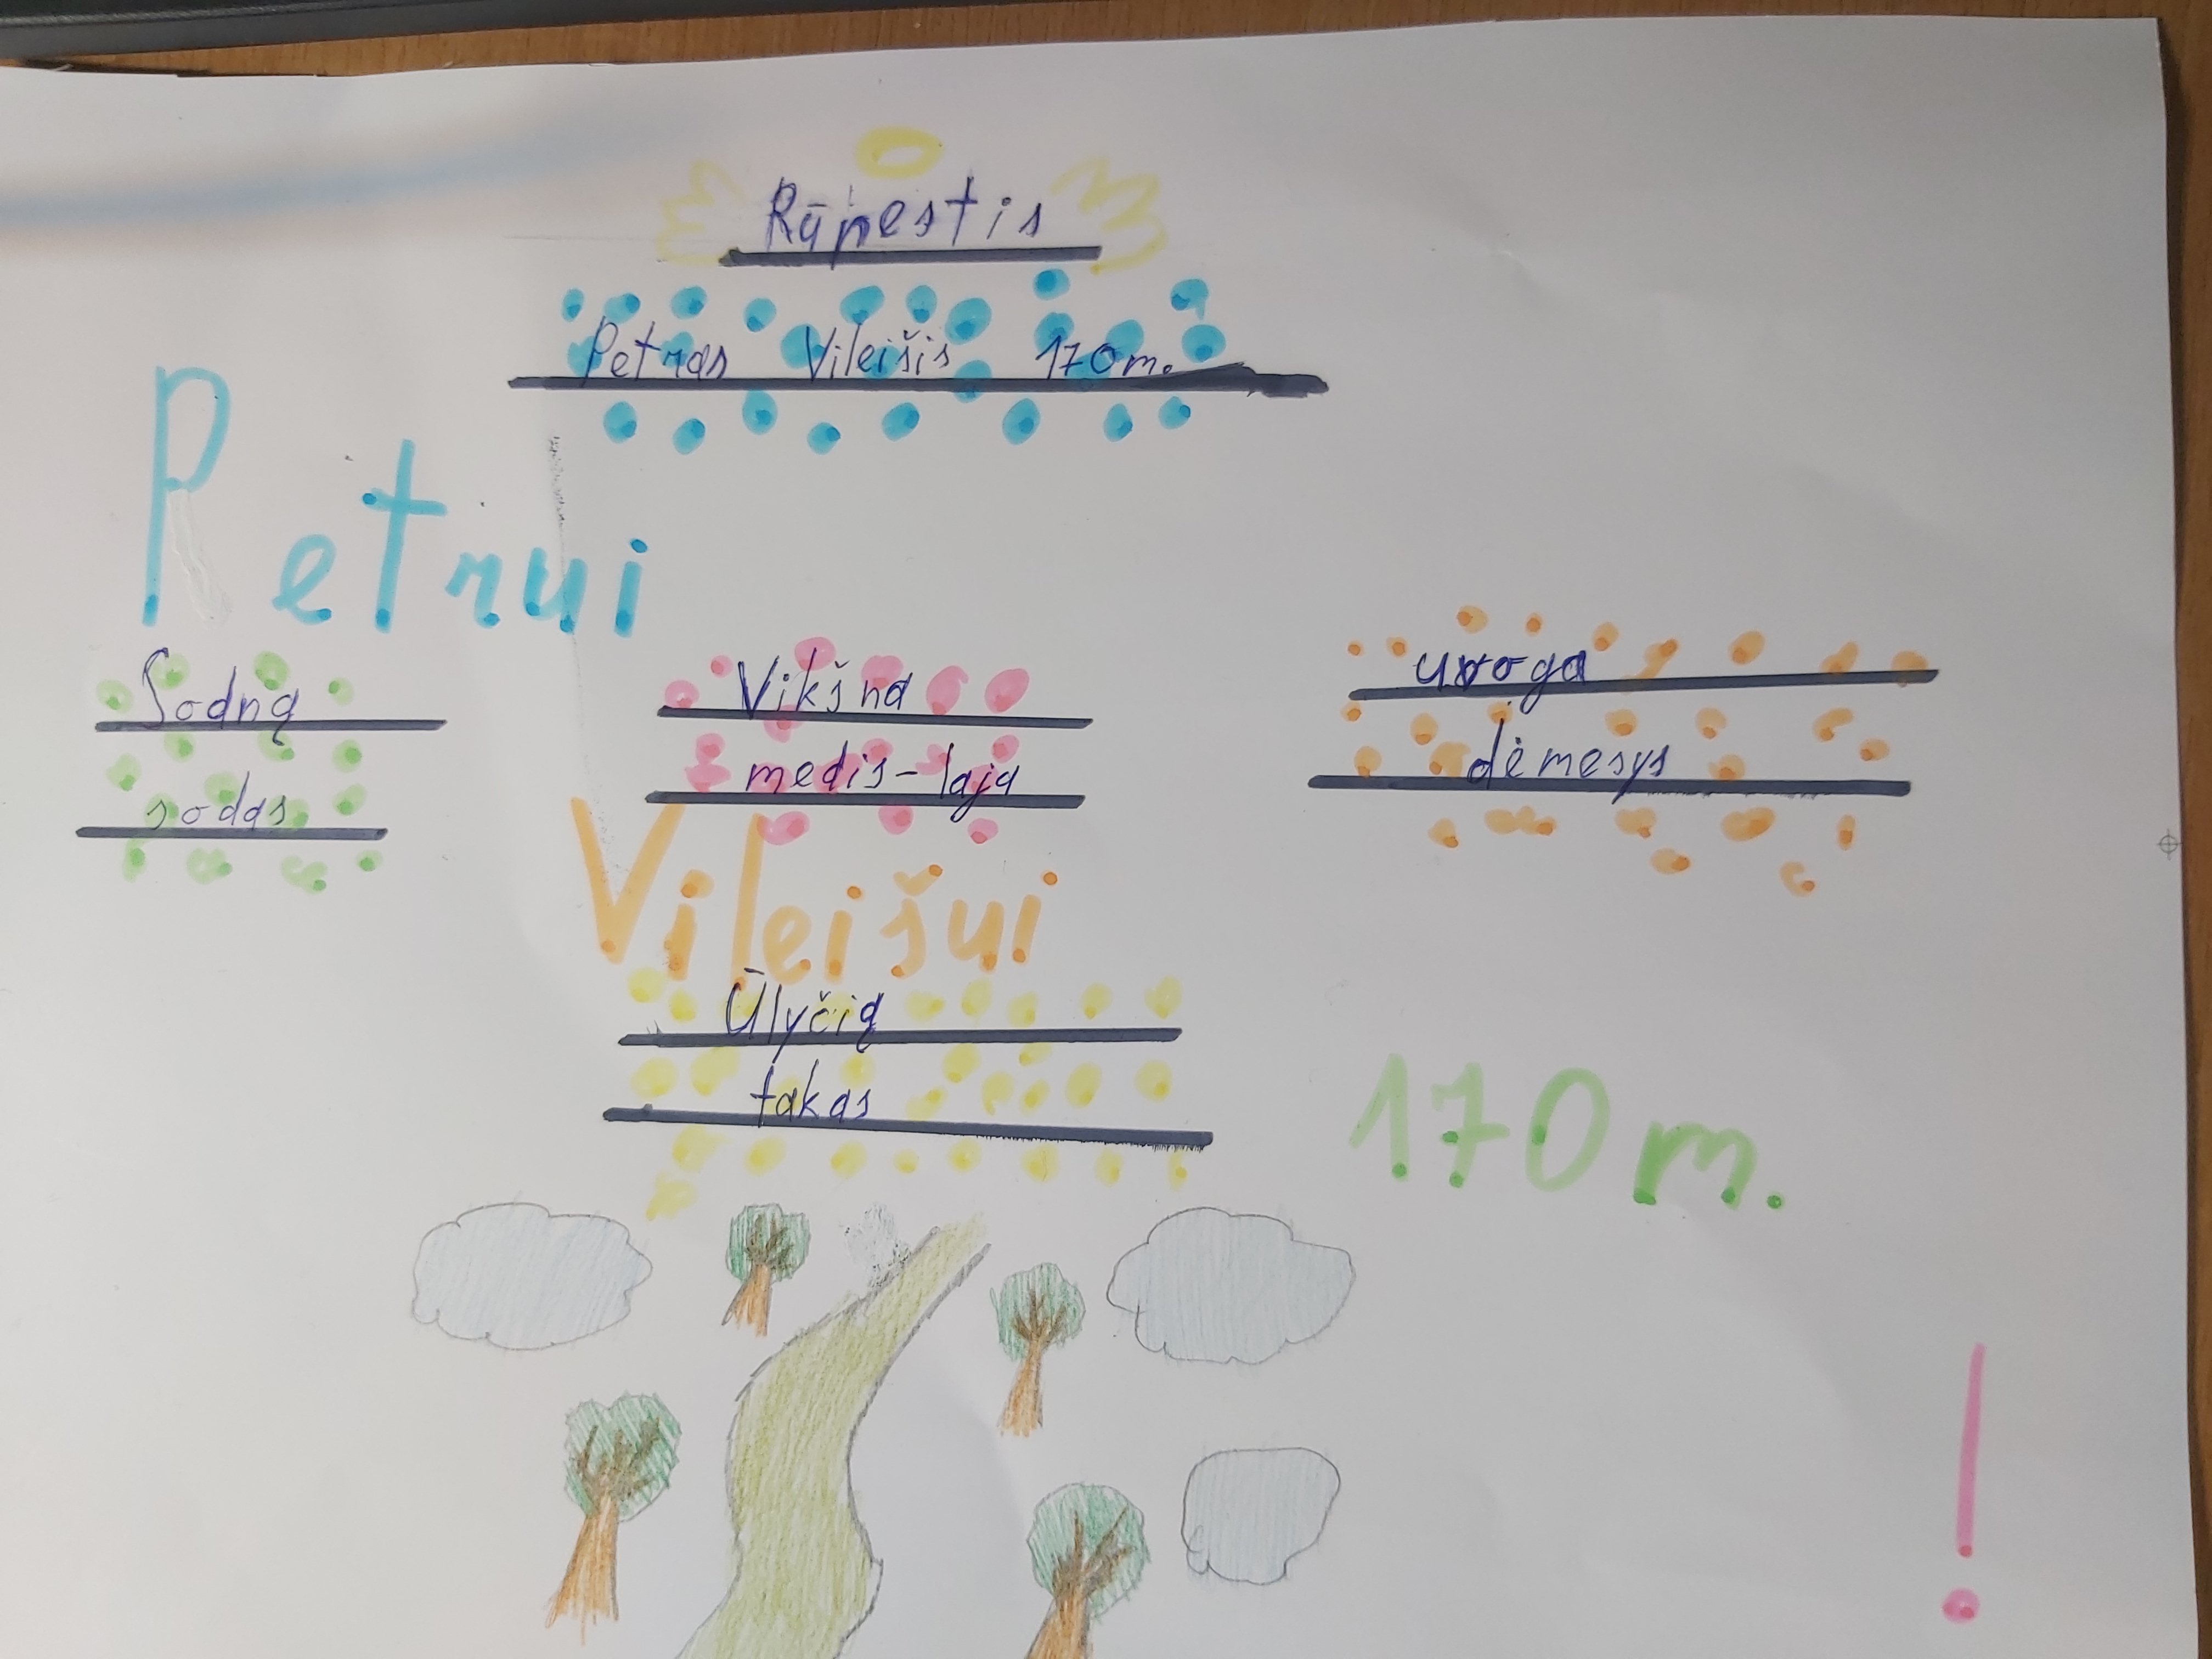 Rūpestis
Petras Vileišis 170 m.
Petrui
Sodną
sodas
Vikšna
medis - laja
uvoga
dėmesys
Vileišui
Ūlyčią
takas
170 m.
!